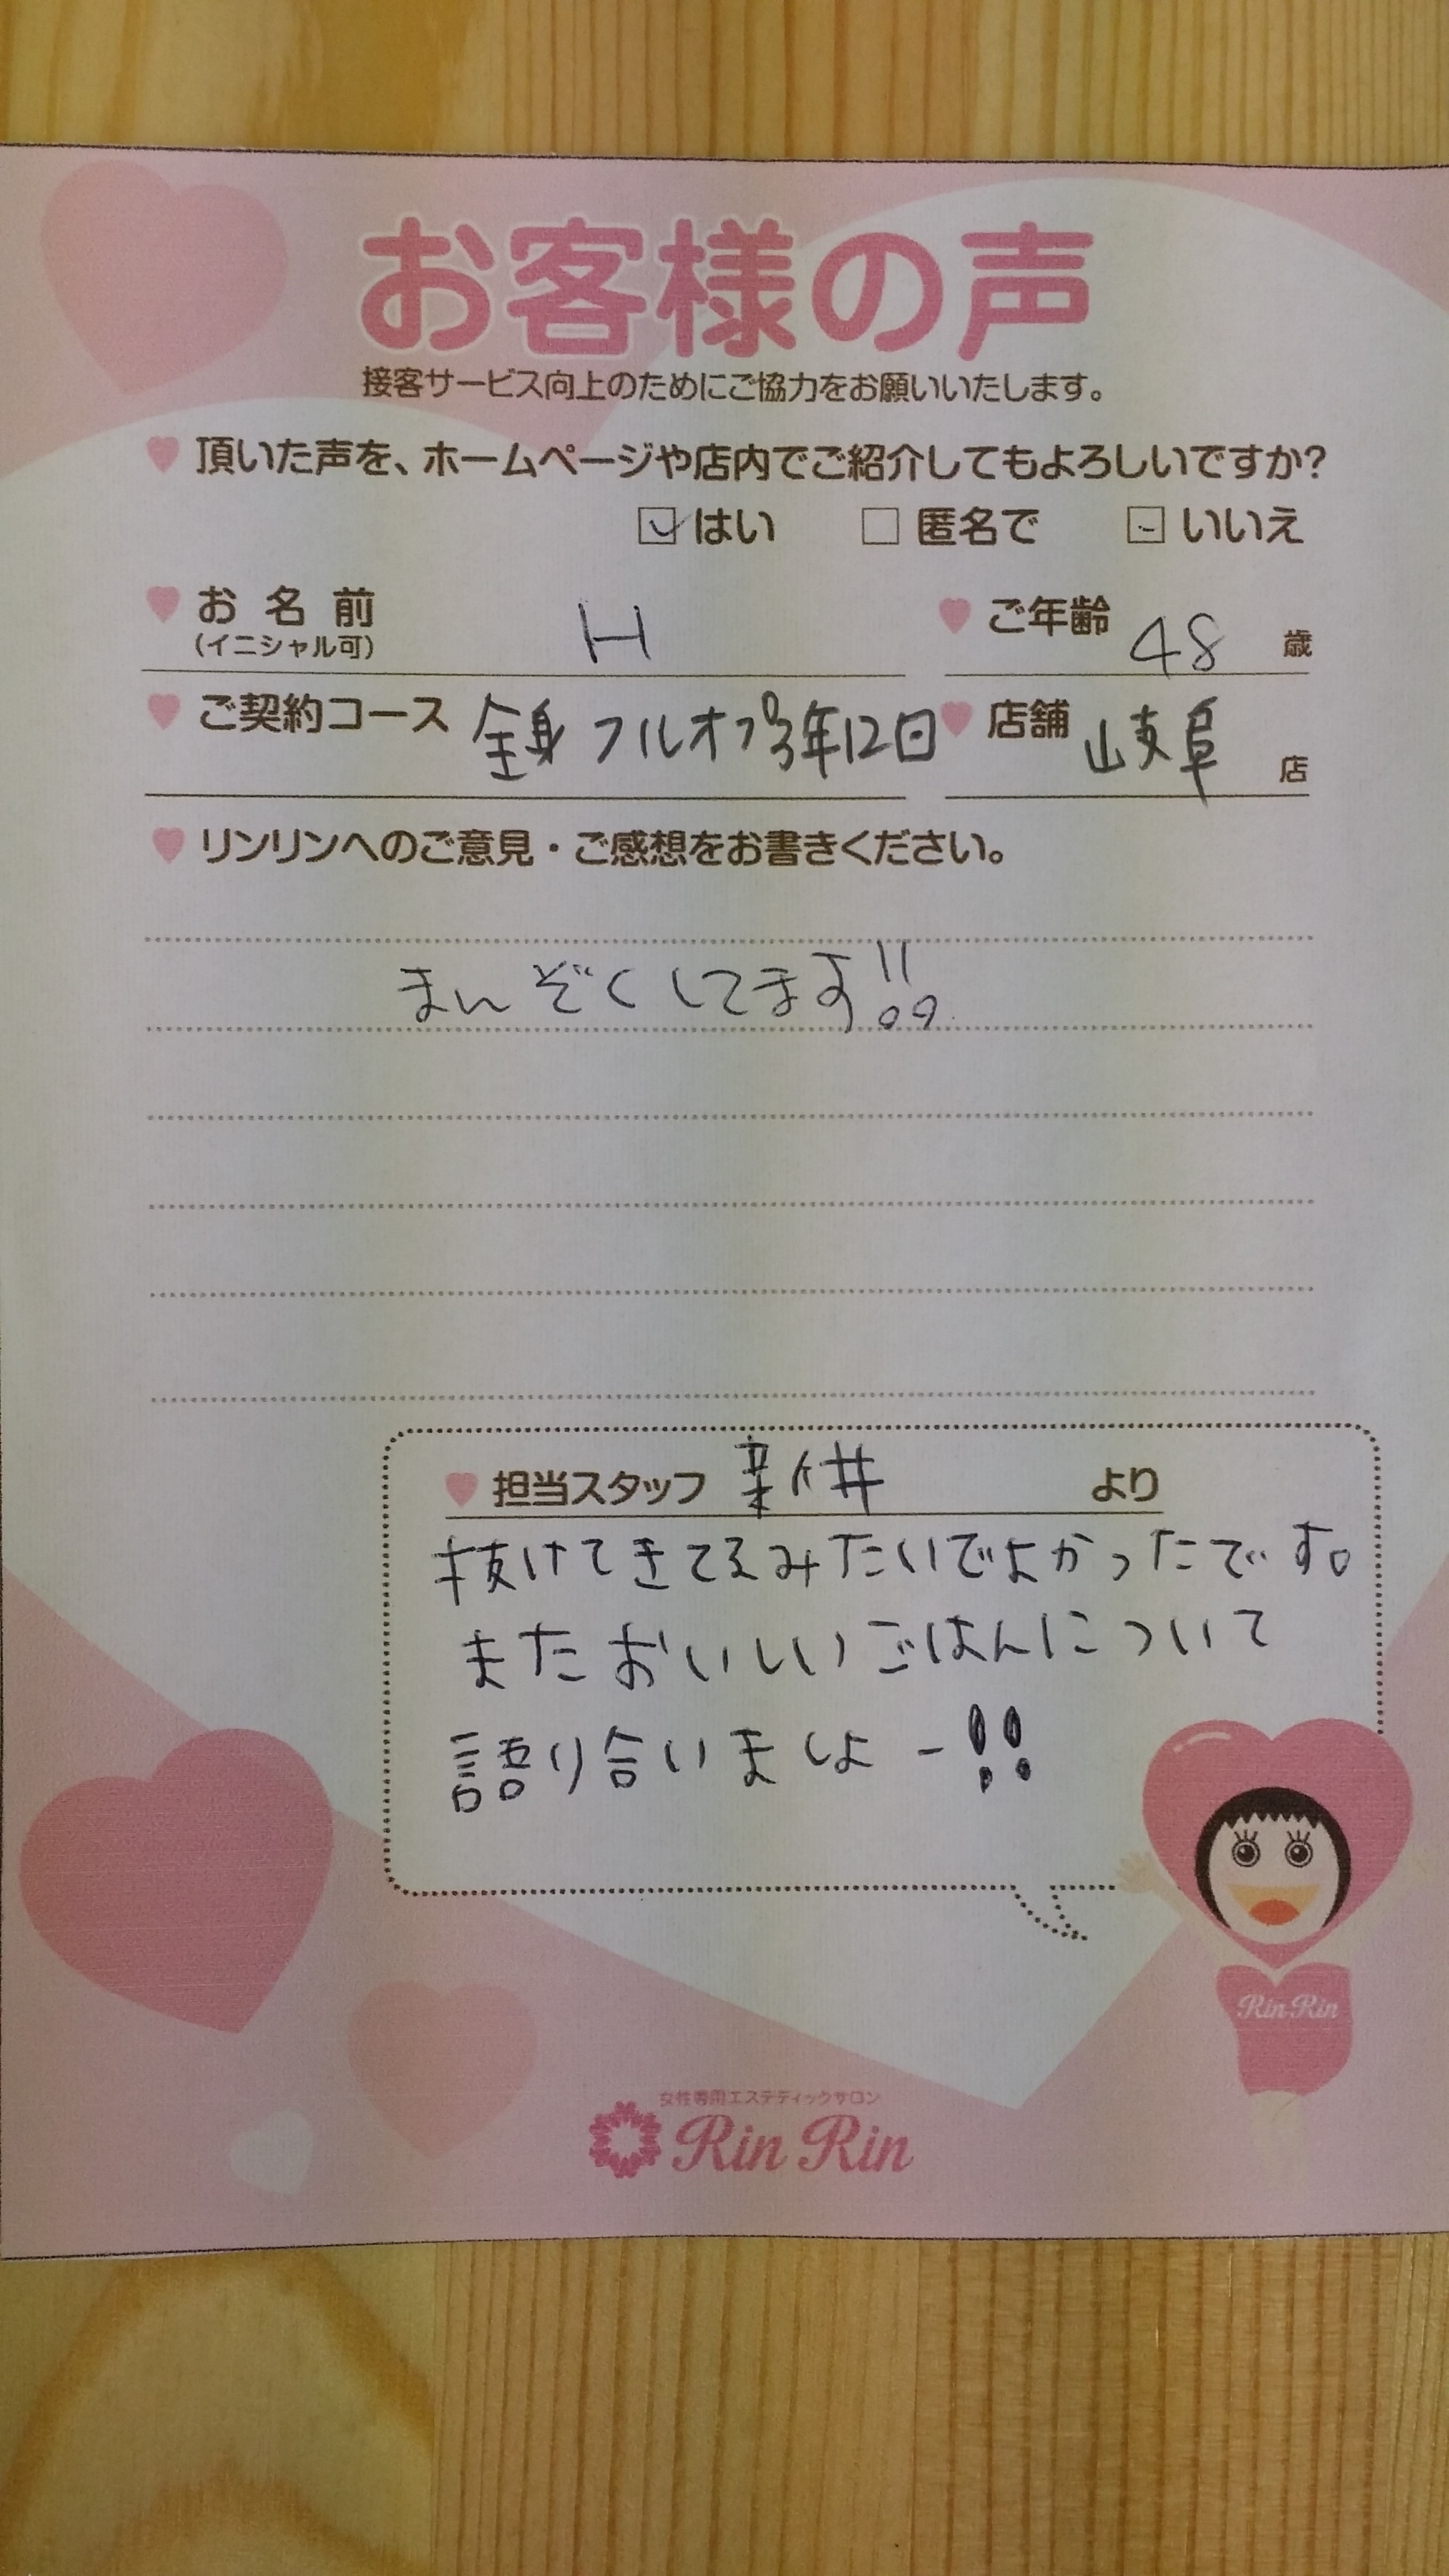 お客様の声
接客サービス向上のためにご協力をお願いいたします。
頂いた声を、ホームページや店内でご紹介してもよろしいですか?
はい 匿名で いいえ
お名前 H ご年齢 48 歳
(イニシャル可)
ご契約コース 全身フルオプ3年12回 店舗 岐阜 店
リンリンへのご意見・ご感想をお書きください。
まんぞくしてます!!
担当スタッフ 新井 より
抜けてきてるみたいでよかったです。
またおいしいごはんについて
語り合いましょー!!
RinRin
女性専用エステティックサロン
Rin Rin